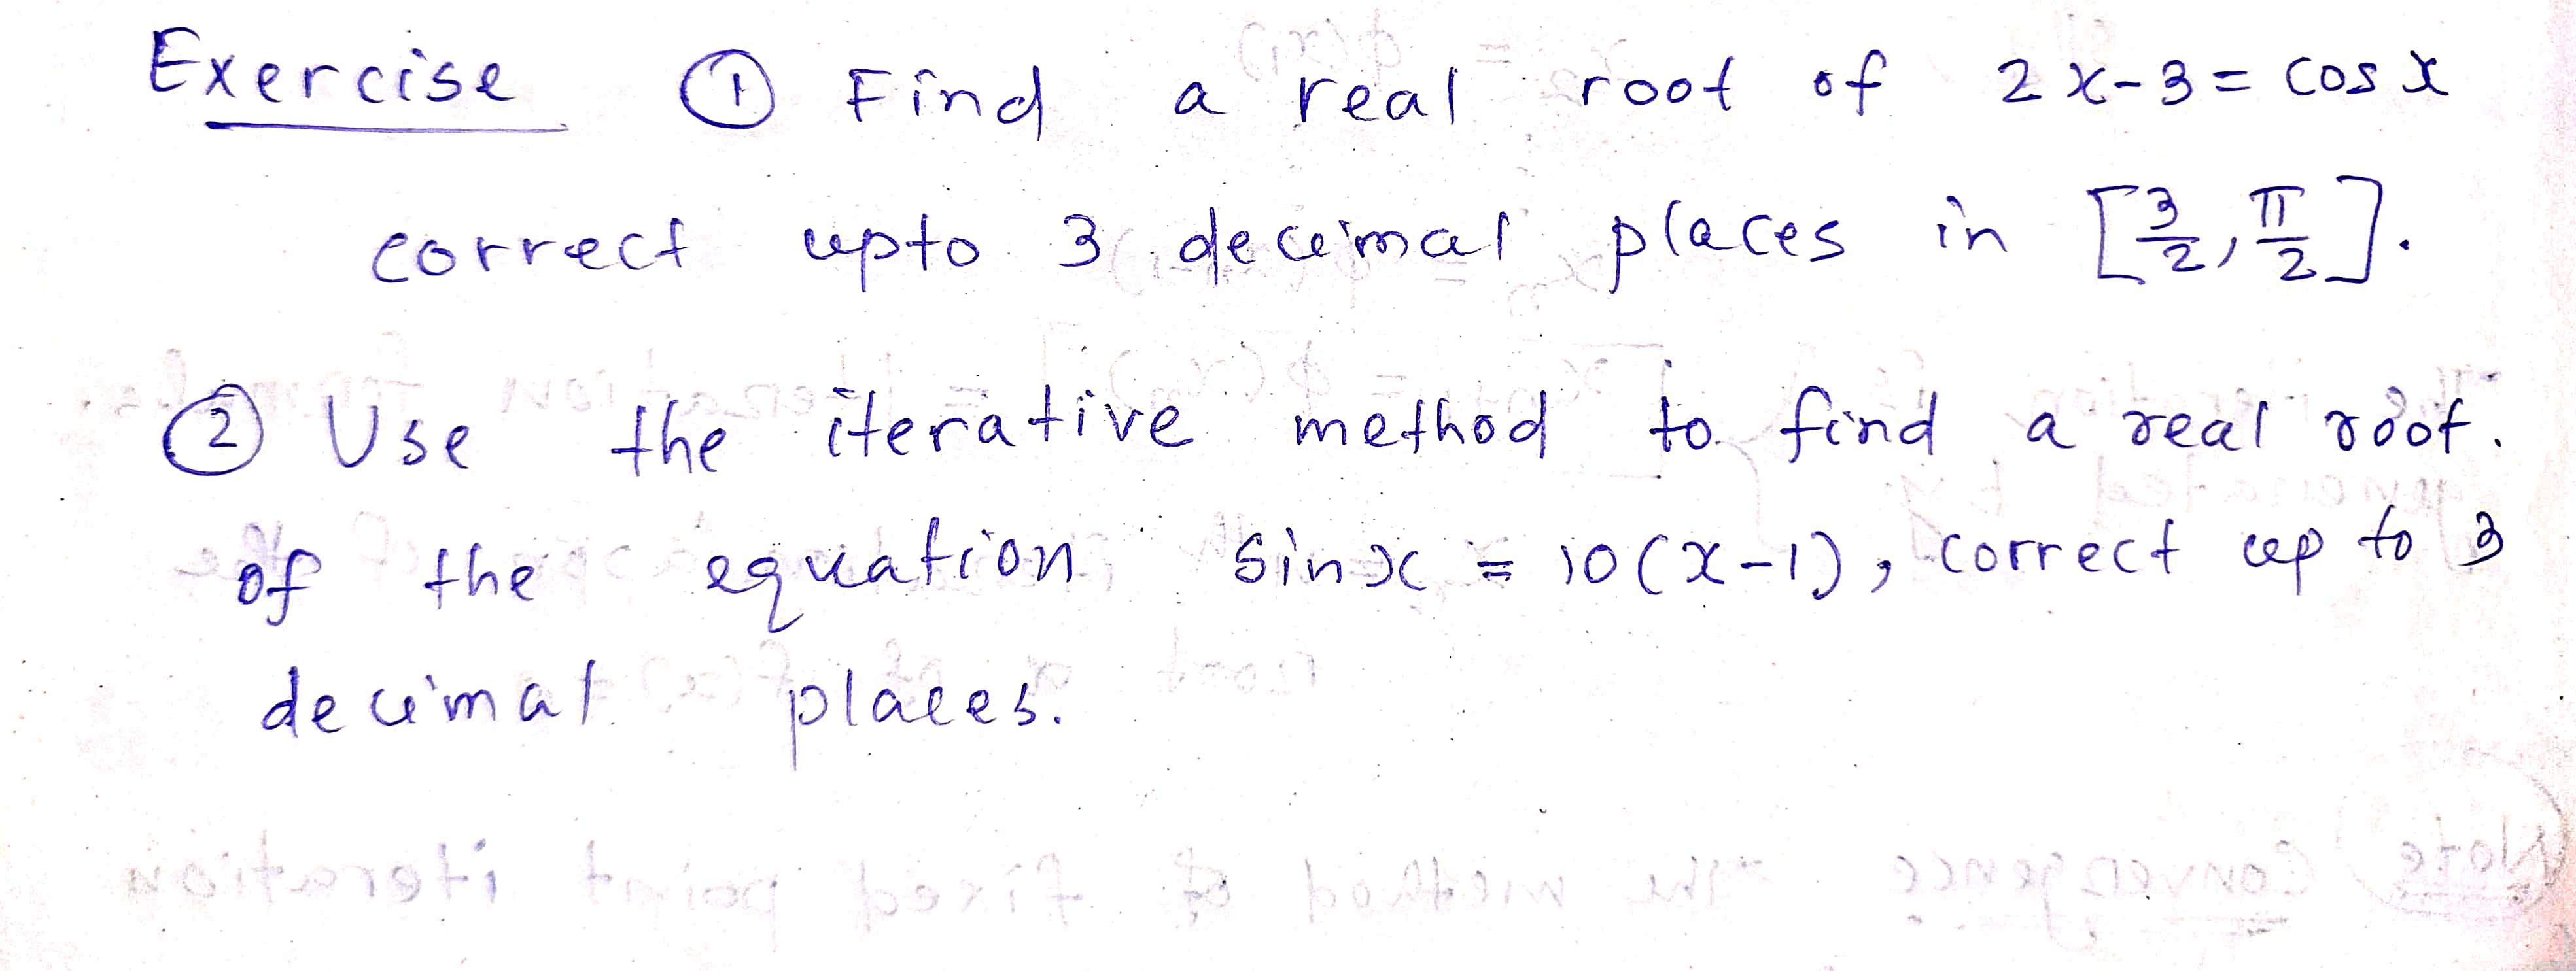 Exercise ① Find a real root of 2x-3 = cos x
correct upto 3 decimal places in [3/2, π/2].
② Use the iterative method to find a real root.
of the equation sinx = 10(x-1), correct up to 3
decimal places.